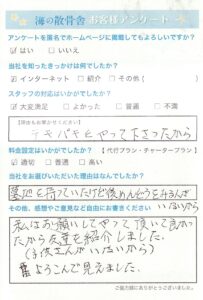 海の散骨舎 お客様アンケート
アンケートを匿名でホームページに掲載してもよろしいですか?
☑はい □いいえ
当社を知ったきっかけは何でしたか?
☑インターネット □紹介 □その他( )
スタッフの対応はいかがでしたか?
☑大変満足 □よかった □普通 □不満
テキパキとやって下さったから
料金設定はいかがでしたか? 【代行プラン・チャータープラン】
☑適切 □普通 □高い
当社をお選びいただいた理由はなんでしたか?
墓地を持っていたけど後めんどうをみる人が
いないから
その他、感想やご意見など自由にお書きください
私はお願いしてやって頂いて良かっ
たから友達も紹介しました。
(子供さんがいないから)
ようこんで見えました。
ご協力誠にありがとうございました。